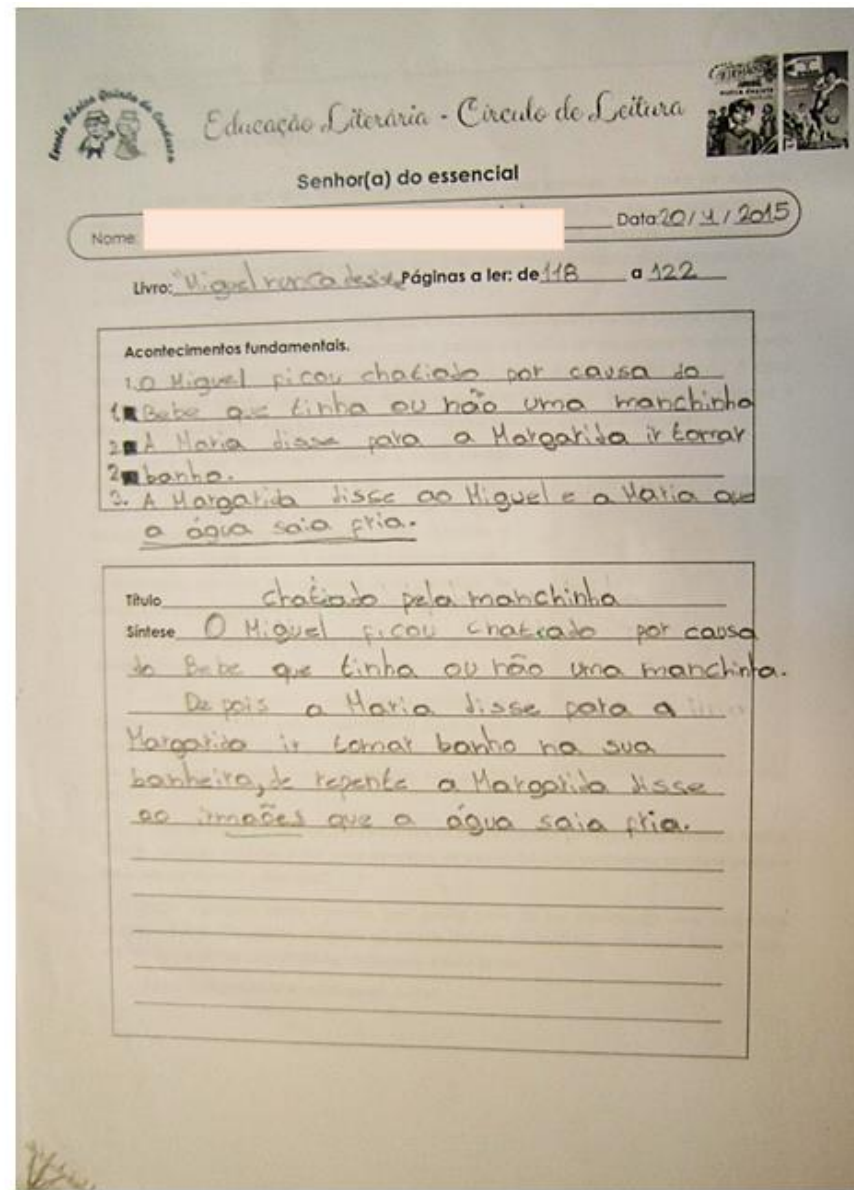 Escola Básica Quinta da Condessa
Educação Literária - Círculo de Leitura
Senhor(a) do essencial
Nome: Data: 20/1/2015
Livro: "Miguel nunca desiste Páginas a ler: de 118 a 122
Acontecimentos fundamentais.
1. O Miguel ficou chatiado por causa do
1 Bebe que tinha ou não uma manchinha
2 A Maria disse para a Margarida ir tomar
2 banho.
3. A Margarida disse ao Miguel e a Maria que
a água saia fria.
Título chatiado pela manchinha
Síntese O Miguel ficou chateado por causa
do Bebe que tinha ou não uma manchinha.
De pois a Maria disse para a
Margarida ir tomar banho na sua
banheira, de repente a Margarida disse
ao irmaões que a água saia fria.